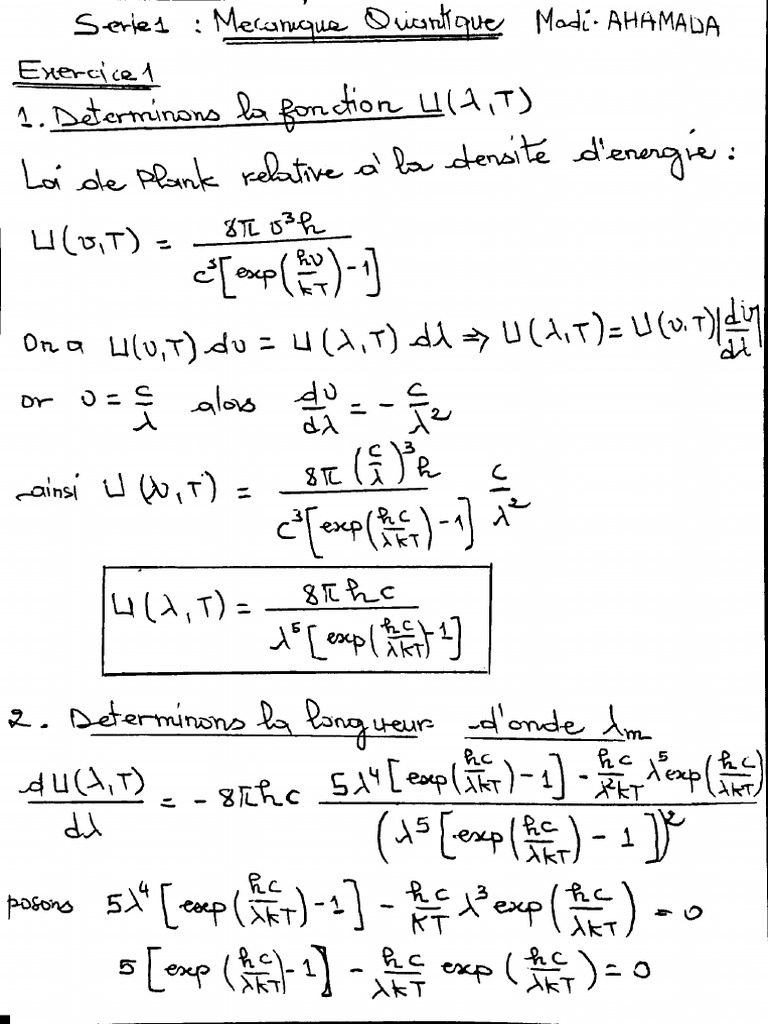 Serie1 : Mecanique Quantique Madi-AHAMADA
Exercice1
1. Determinons la fonction U(λ,T)
Loi de Plank relative à la densité d'energie :
U(υ,T) = 8π υ³h / c³[exp(hυ/kT)-1]
On a U(υ,T) dυ = U(λ,T) dλ ⇒ U(λ,T) = U(υ,T)|dυ/dλ|
or υ = c/λ alors dυ/dλ = - c/λ²
ainsi U(λ,T) = 8π (c/λ)³h / c³[exp(hc/λkT)-1] c/λ²
U(λ,T) = 8πhc / λ⁵[exp(hc/λkT)-1]
2. Determinons la longueur d'onde λm
dU(λ,T)/dλ = - 8πhc (5λ⁴[exp(hc/λkT)-1] - hc/λ²kT λ⁵exp(hc/λkT)) / (λ⁵[exp(hc/λkT) - 1])²
posons 5λ⁴[exp(hc/λkT)-1] - hc/KT λ³exp(hc/λkT) = 0
5[exp(hc/λkT)-1] - hc/λKT exp(hc/λKT) = 0